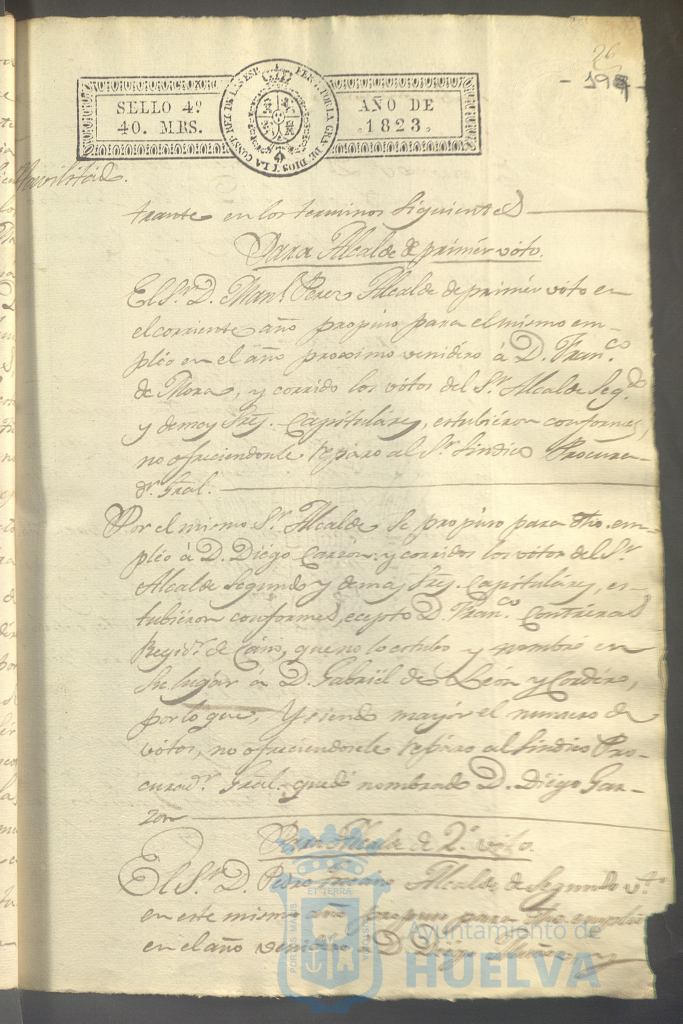 26
- 197 -
SELLO 4º
40. MRS.
AÑO DE
1823.
trante en los terminos siguientes
Para Alcalde de primer voto.
El Sr. D. Manl. Perez Alcalde de primer voto en
el corriente año propuso para el mismo em-
pléo en el año proximo venidero á D. Franco.
de Mora, y corrido los votos del Sr. Alcalde Segdo.
y demas Sres. Capitulares, estubieron conformes,
no ofreciendosele reparo al Sr. Sindico Procura-
dr. Gral.
Por el mismo Sr. Alcalde se propuso para dho. em-
pléo á D. Diego Garzon: y corridos los votos del Sr.
Alcalde Segundo y demas Sres. Capitulares, es-
tubieron conformes, ecepto D. Franco. Contreras
Regidr. de Cano, que no lo estubo y nombró en
su lugar á D. Gabriel de León y Cordero,
por lo que, Y siendo mayor el numero de
votos, no ofreciendosele reparo al Sindico Pro-
curadr. Gral. quedó nombrado D. Diego Gar-
zon
Para Alcalde de 2º. voto.
El Sr. D. Pedro Alcalde de Segundo vto.
en este mismo año propuso para dho. empleo
en el año venidero á D. Diego
Ayuntamiento de
HUELVA